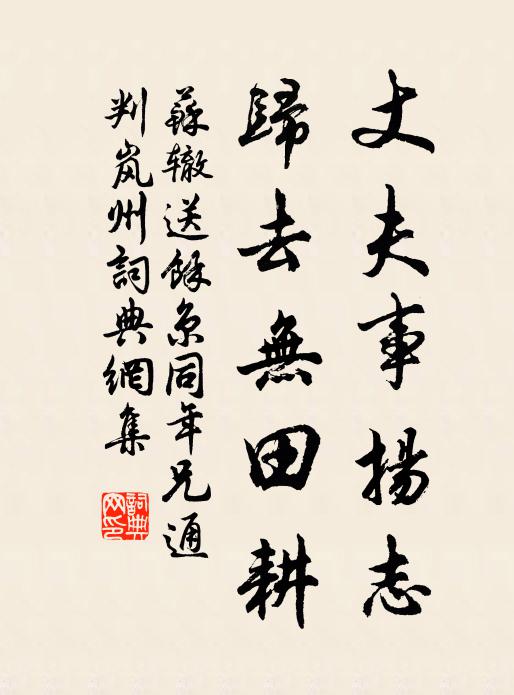 丈夫事揚志
歸去無田耕
蘇辙送餘京同年兄通
判岚州詞典網集
詞典网印